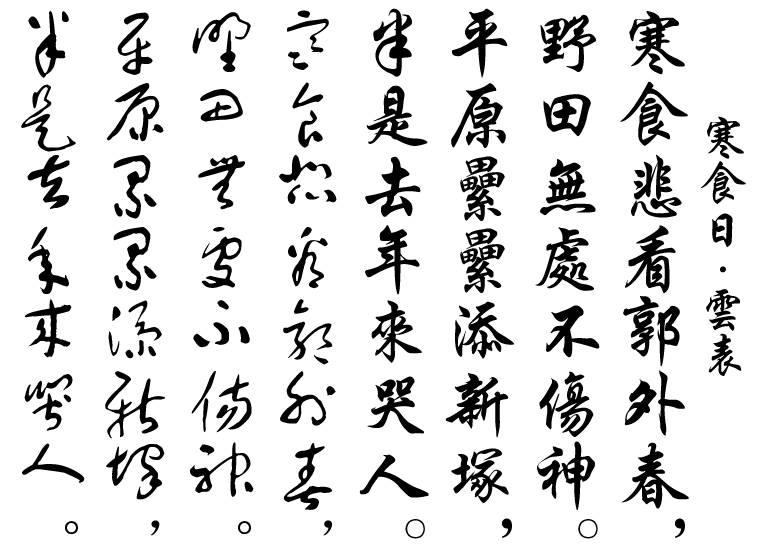 寒食日·雲表
寒食悲看郭外春，
野田無處不傷神。
平原纍纍添新塚，
半是去年來哭人。
寒食悲看郭外春，
野田無處不傷神。
平原纍纍添新塚，
半是去年來哭人。